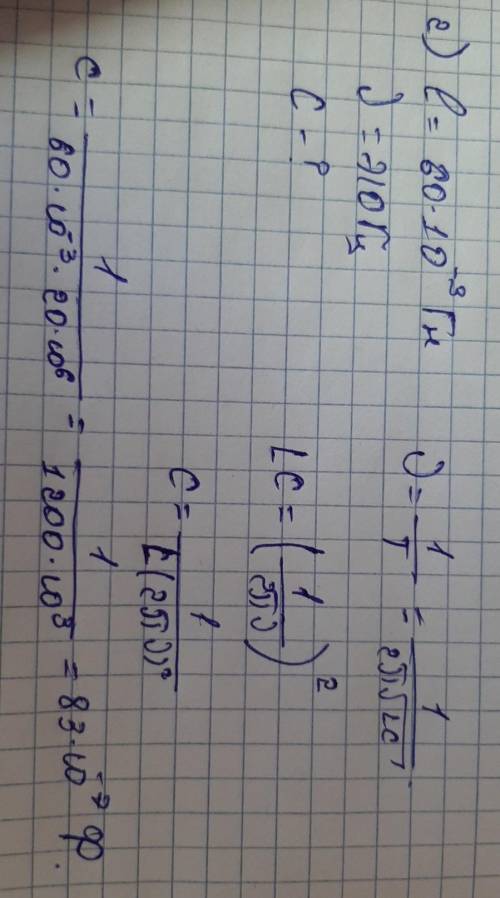 2) L = 60·10⁻³ Гн
ν = 210 Гц
C - ?
ν = 1/T = 1/(2π√LC)
LC = (1/(2πν))²
C = 1/(L(2πν)²)
C = 1/(60·10⁻³·20·10⁶) = 1/(1200·10³) = 83·10⁻⁷ ф.